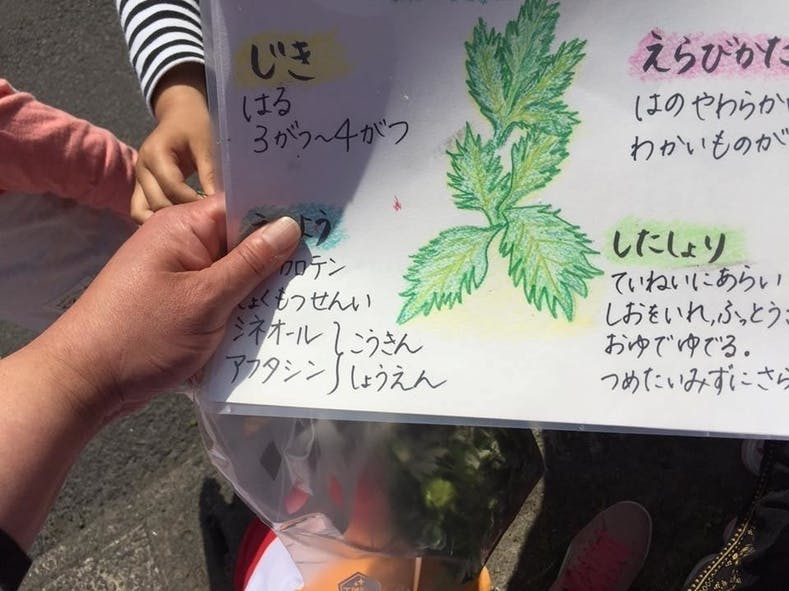 じき
はる
3がつ〜4がつ
よう
ロテン
しょくもつせんい
シネオール
アフタシン
こうきん
しょうえん
えらびかた
はのやわらか
わかいものが
したしょり
ていねいにあらい
しおをいれ,ふっとう
おゆでゆでる。
つめたいみずにさら